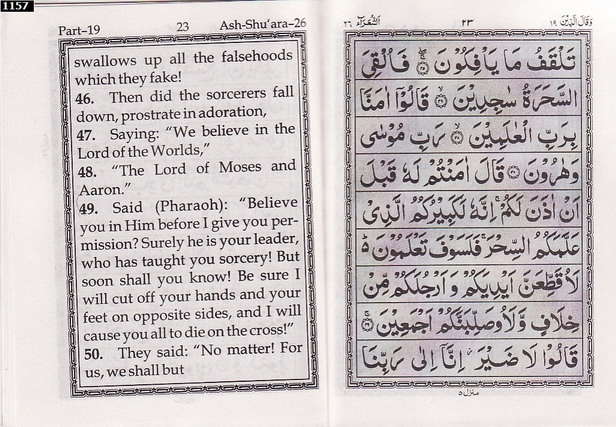 1157
Part–19 23 Ash-Shu‘ara–26
swallows up all the falsehoods
which they fake!
46. Then did the sorcerers fall
down, prostrate in adoration,
47. Saying: “We believe in the
Lord of the Worlds,”
48. “The Lord of Moses and
Aaron.”
49. Said (Pharaoh): “Believe
you in Him before I give you per-
mission? Surely he is your leader,
who has taught you sorcery! But
soon shall you know! Be sure I
will cut off your hands and your
feet on opposite sides, and I will
cause you all to die on the cross!”
50. They said: “No matter! For
us, we shall but
وَقَالَ الَّذِيْنَ ١٩ ٢٣ الشُّعَرَآء ٢٦
تَلْقَفُ مَا يَاْفِكُوْنَ ۝٤٥ فَاُلْقِيَ
السَّحَرَةُ سٰجِدِيْنَ ۝٤٦ قَالُوْٓا اٰمَنَّا
بِرَبِّ الْعٰلَمِيْنَ ۝٤٧ رَبِّ مُوْسٰى
وَهٰرُوْنَ ۝٤٨ قَالَ اٰمَنْتُمْ لَهٗ قَبْلَ
اَنْ اٰذَنَ لَكُمْ ۚ اِنَّهٗ لَكَبِيْرُكُمُ الَّذِيْ
عَلَّمَكُمُ السِّحْرَ ۚ فَلَسَوْفَ تَعْلَمُوْنَ ؕ
لَاُقَطِّعَنَّ اَيْدِيَكُمْ وَاَرْجُلَكُمْ مِّنْ
خِلَافٍ وَّلَاُوصَلِّبَنَّكُمْ اَجْمَعِيْنَ ۝٤٩
قَالُوْا لَا ضَيْرَ ؗ اِنَّآ اِلٰى رَبِّنَا
منزل ٥